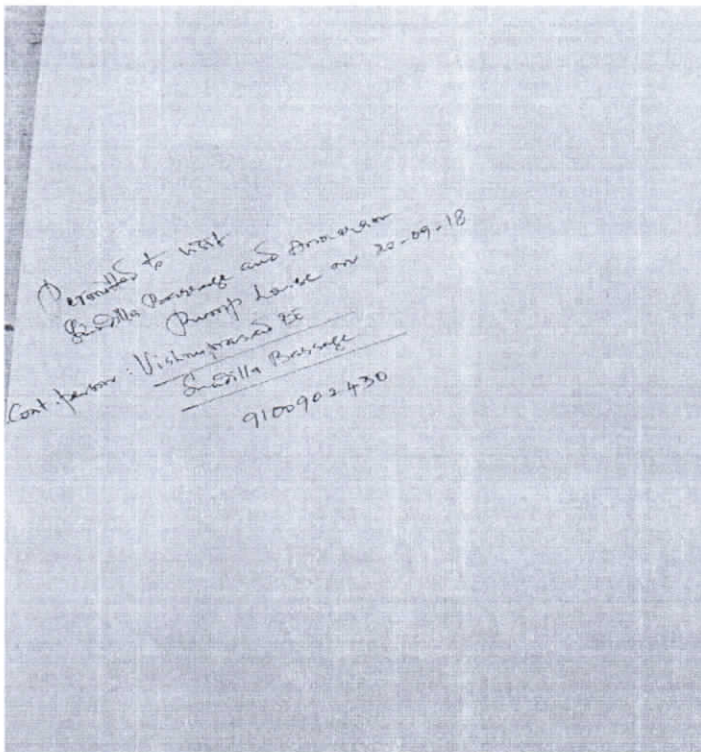 Permitted to visit
Sundilla Barrage and Annaram
Pump house on 20-09-18
Cont person: Vishnuprasad EE
Sundilla Barrage
9100902430